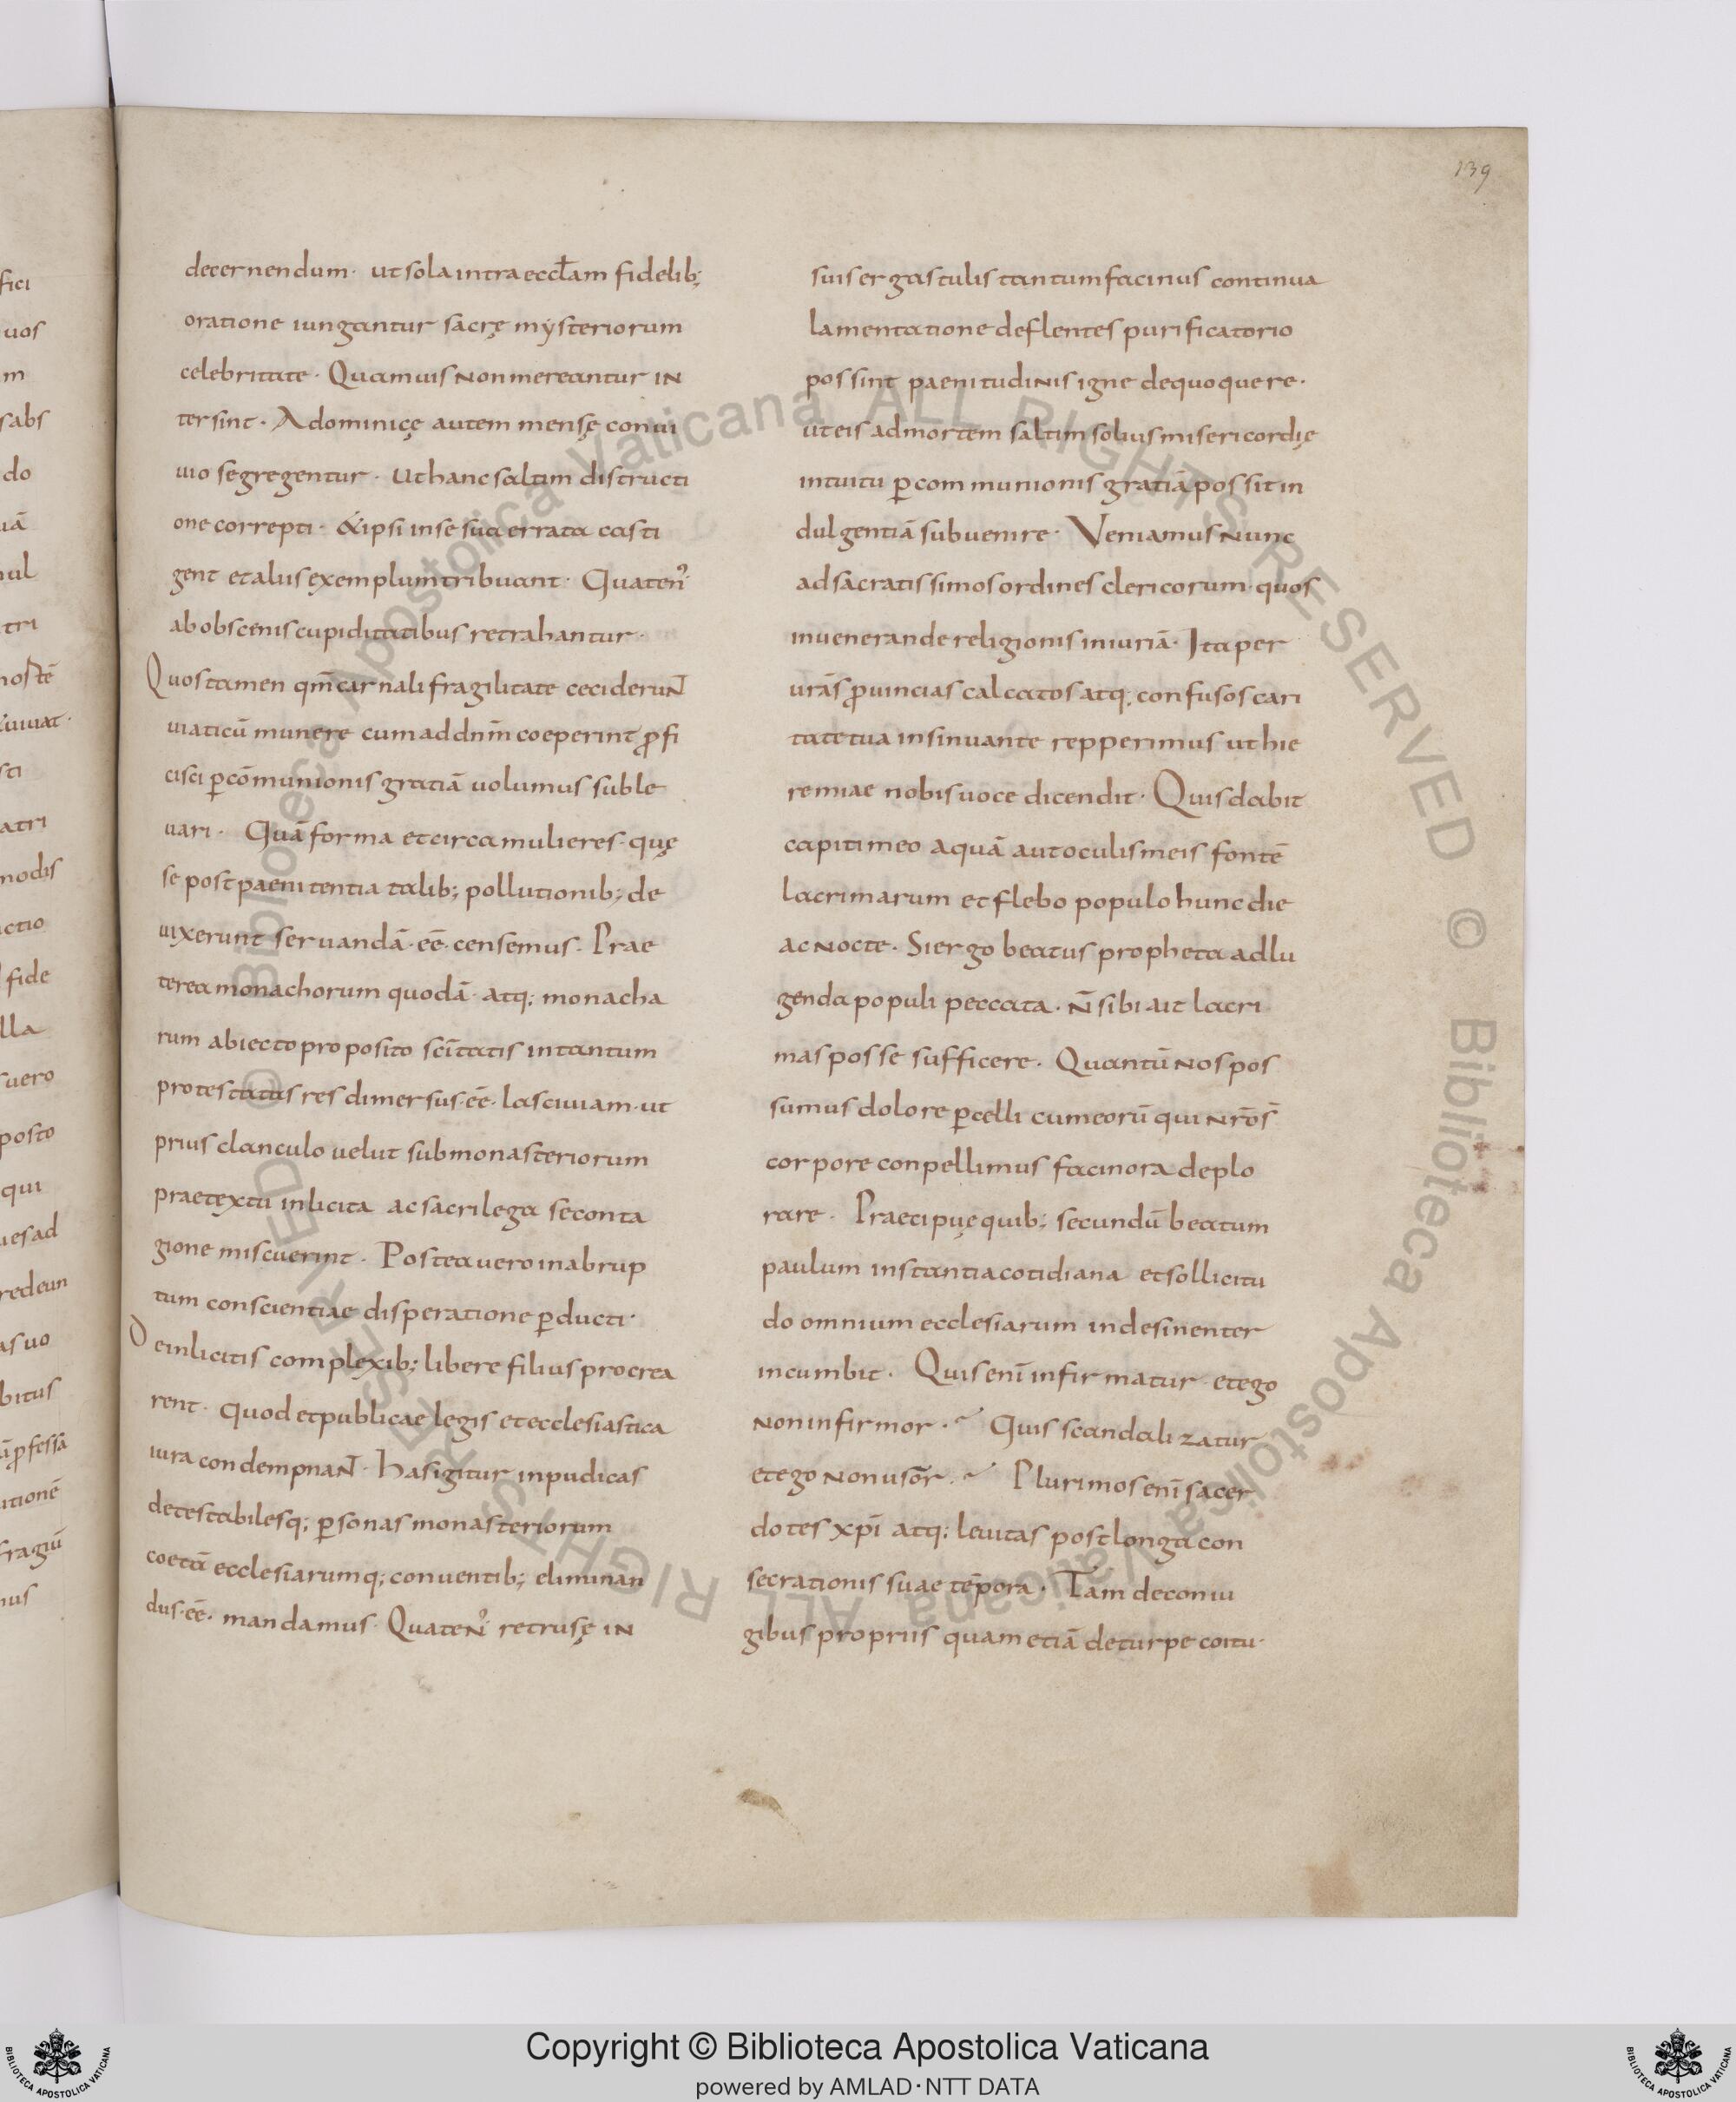 139
decernendum· ut sola intra eccłam fidelib;
oratione iungantur sacrę mẏsteriorum
celebritate· Quamuis non mereantur in
tersint· A dominicę autem mensę conui
uio segregentur· ut hanc saltim distructi
one correpti· & ipsi in se sua errata casti
gent et aliis exemplum tribuant· Quaten᾿
ab obscenis cupiditatibus retrahantur·
Quos tamen qm̄ carnali fragilitate ceciderunt̄
uiaticū munere cum ad dnm̄ coeperint ꝓfi
cisci ꝑ cōmunionis gratiā uolumus suble
uari· Quā forma et circa mulieres· quę
se post paenitentia talib; pollutionib; de
uixerunt seruandā· eē· censemus· Prae
terea monachorum quodā· atq; monacha
rum abiecto proposito sc̄itatis in tantum
protestatas res dimersus· eē· lasciuiam· ut
prius clanculo uelut sub monasteriorum
praetextu inlicita ac sacrilega se conta
gione miscuerint· Postea uero in abrup
tum conscientiae disperatione ꝑducti·
De inlicitis complexib; libere filius procrea
rent· quod et publicae legis et ecclesiastica
iura condempnant̄· has igitur inpudicas
detestabilesq; ꝑsonas monasteriorum
coetā ecclesiarumq; conuentib; eliminan
dus· eē· mandamus· Quaten᾿ retrusę in
suis ergastulis tantum facinus continua
lamentatione deflentes purificatorio
possint paenitudinis igne dequoquere·
ut eis ad mortem saltim solius misericordię
intuitu ꝑ communionis gratiā possit in
dulgentiā subuenire· Veniamus nunc
ad sacratissimos ordines clericorum· quos
in uenerande religionis iniuriā· Ita per
urās ꝓuincias calcatos atq; confusos cari
tate tua insinuante repperimus ut hie
remiae nobis uoce dicendit· Quis dabit
capiti meo aquā aut oculis meis fontē
lacrimarum et flebo populo hunc die
ac nocte· Si ergo beatus propheta ad lu
genda populi peccata· n̄ sibi ait lacri
mas posse sufficere· Quantū nos pos
sumus dolore ꝑcelli cum eorū qui nrōs
corpore conpellimus facinora deplo
rare· Praecipuę quib; secundū beatum
paulum instantia cotidiana et sollicitu
do omnium ecclesiarum indesinenter
incumbit· Quis enī infirmatur· et ego
non infirmor·~ Quis scandalizatur
et ego non usōr·~ Plurimos enī sacer
dotes xpī atq; leuitas post longa con
secrationis suae tēpora· Tam de coniu
gibus propriis quam etiā de turpe coitu·
© Biblioteca Apostolica Vaticana ALL RIGHTS RESERVED © Biblioteca Apostolica Vaticana ALL RIGHTS RESERVED
Copyright © Biblioteca Apostolica Vaticana
powered by AMLAD·NTT DATA
BIBLIOTECA APOSTOLICA VATICANA
BIBLIOTECA APOSTOLICA VATICANA